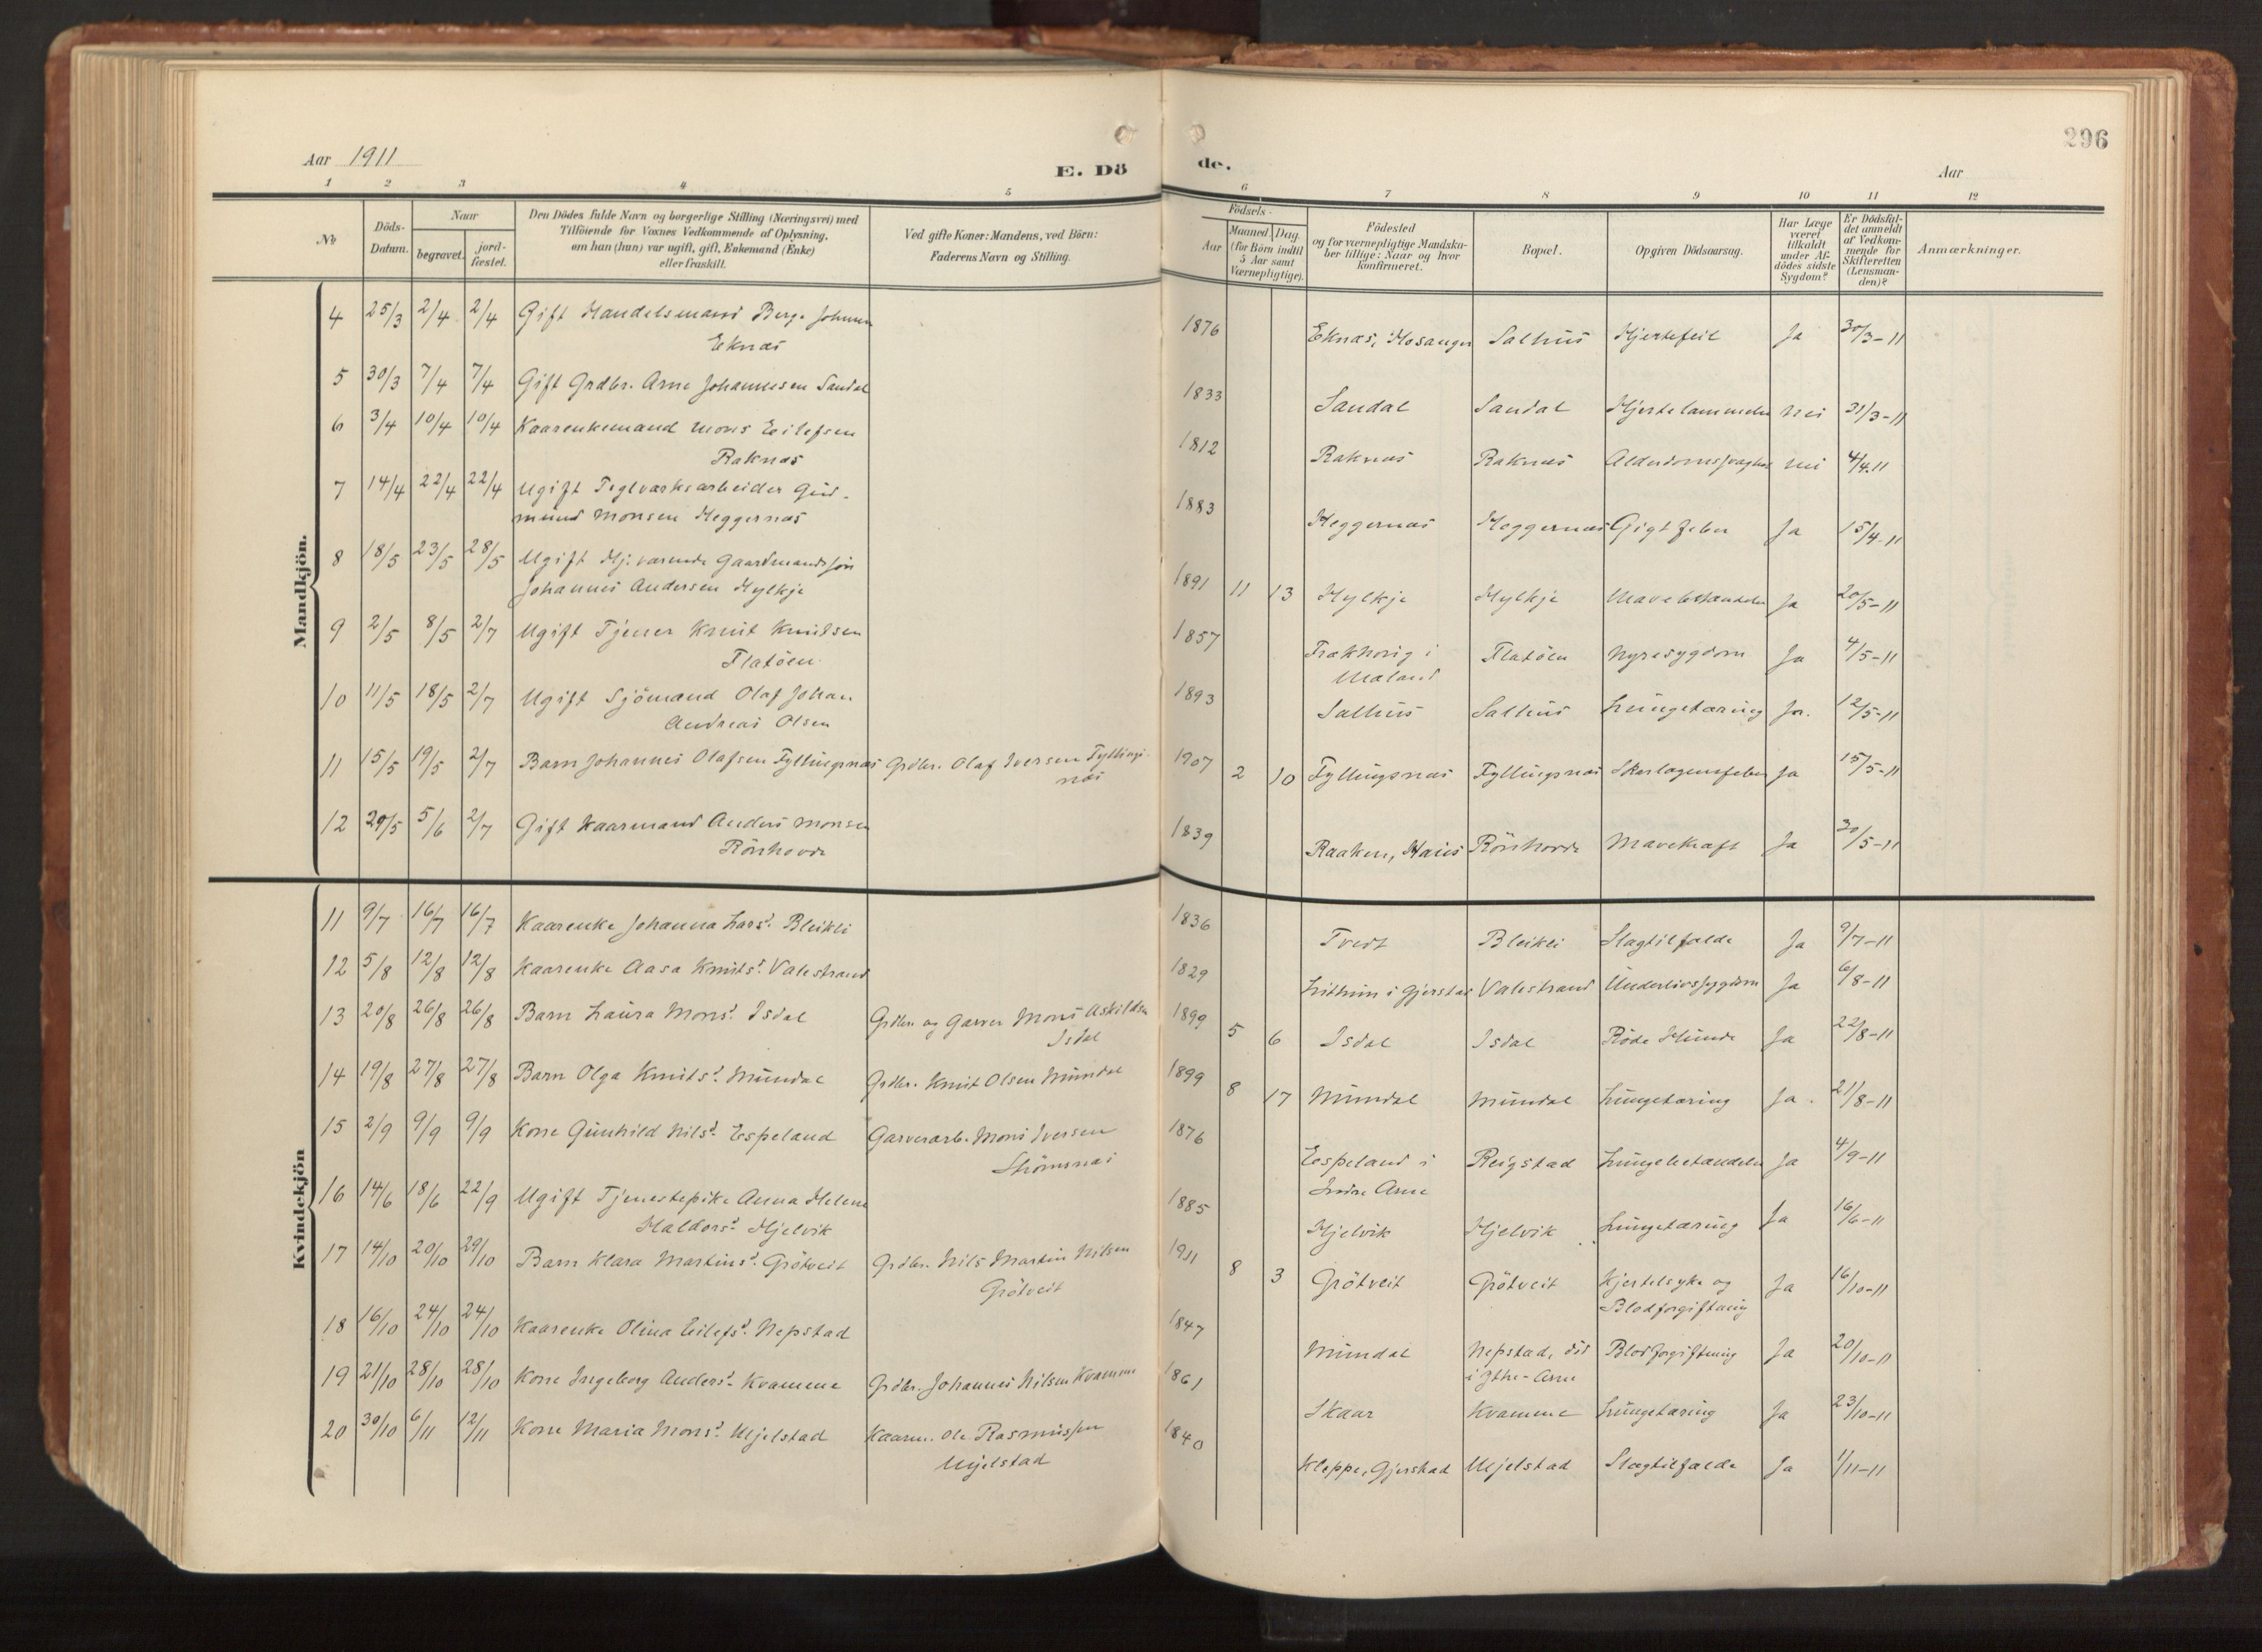 296
Aar 1911
E. Dö
de.
Aar
1 2 3 4 5 6 7 8 9 10 11 12
No
Döds-
Datum.
Naar
begravet.
jord-
fæstet.
Den Dödes fulde Navn og borgerlige Stilling (Næringsvei) med
Tilföiende for Voxnes Vedkommende af Oplysning,
om han (hun) var ugift, gift, Enkemand (Enke)
eller fraskilt.
Ved gifte Koner: Mandens, ved Börn:
Faderens Navn og Stilling.
Födsels-
Aar
Maaned. Dag.
(for Börn indtil
5 Aar samt
Værnepligtige).
Födested
og for værnepligtige Mandska-
ber tillige: Naar og hvor
konfirmeret.
Bopæl.
Opgiven Dödsaarsag.
Har Læge
været
tilkaldt
under Af-
dödes sidste
Sygdom?
Er Dödsfal-
det anmeldt
af Vedkom-
mende for
Skifteretten
(Lensman-
den)?
Anmærkninger.
Mandkjön.
4 25/3 2/4 2/4 Gift Handelsmand Berge Johnsen
Eknæs
1876 Eknæs, Hosanger Salhus Hjertefeil Ja 30/3-11
5 30/3 7/4 7/4 Gift Grdbr. Arne Johannesen Sandal
1833 Sandal Sandal Hjertelammelse nei 31/3-11
6 3/4 10/4 10/4 Kaarenkemand Mons Eilefsen
Raknæs
1812 Raknæs Raknæs Alderdomssvaghed nei 4/4.11
7 14/4 22/4 22/4 Ugift Teglværksarbeider Gud-
mund Monsen Heggernæs
1883 Heggernæs Heggernæs Gigtfeber Ja 15/4-11
8 18/5 23/5 28/5 Ugift Hj. værende Gaardmandssön
Johannes Andersen Hylkje
1891 11 13 Hylkje Hylkje Mavebetændelse Ja 20/5-11
9 2/5 8/5 2/7 Ugift Tjener Knut Knutsen
Flatöen
1857 Flatöen Nyresygdom Ja 4/5-11
10 11/5 18/5 2/7 Ugift Sjömand Olaf Johan
Andreas Olsen
1893 Salhus Salhus Lungetæring Ja. 12/5-11
11 15/5 19/5 2/7 Barn Johannes Olafsen Fyllingsnæs Grdbr. Olaf Iversen Fyllings-
næs
1907 2 10 Fyllingsnæs Fyllingsnæs Skarlagensfeber Ja 15/5-11
12 29/5 5/6 2/7 Gift Kaarmand Anders Monsen
Rönhovde
1839 Raaken, Haus Rönhovde Mavekræft Ja 30/5-11
Kvindekjön
11 9/7 16/7 16/7 Kaarenke Johanna Larsd. Bleikli
1836 Tvedt Bleikli Slagtilfælde Ja 9/7-11
12 5/8 12/8 12/8 Kaarenke Aasa Knutsd. Valestrand
1829 i Gjerstad Valestrand Underlivssygdom Ja 6/8-11
13 20/8 26/8 26/8 Barn Laura Monsd. Isdal Grdbr. og Garver Mons Askildsen
Isdal
1899 5 6 Isdal Isdal Röde Hunde Ja 22/8-11
14 19/8 27/8 27/8 Barn Olga Knutsd. Mundal Grdbr. Knut Olsen Mundal
1899 8 17 Mundal Mundal Lungetæring Ja. 21/8-11
15 2/9 9/9 9/9 Kone Gunhild Nilsd. Espeland Garverarb. Mons Iversen
Strömsnæs
1876 Espeland i
Indre Arne
Reigstad Lungebetændelse Ja 4/9-11
16 14/6 18/6 22/9 Ugift Tjenestepike Anna Helene
Haldorsd. Hjelvik
1885 Hjelvik Hjelvik Lungetæring Ja 16/6-11
17 14/10 20/10 29/10 Barn Klara Martinsd. Grötveit Grdbr. Nils Martin Nilsen
Grötveit
1911 8 3 Grötveit Grötveit Kjertelsyke og
Blodforgiftning
Ja 16/10-11
18 16/10 24/10 24/10 Kaarenke Olina Eilefsd. Nepstad
1847 Mundal Nepstad, död
i Ytre-Arne
Blodforgiftning Ja 20/10-11
19 21/10 28/10 28/10 Kone Ingeborg Andersd. Kvamme Grdbr. Johannes Nilsen Kvamme
1861 Skaar Kvamme Lungetæring Ja 23/10-11
20 30/10 6/11 12/11 Kone Maria Monsd. Mjelstad Kaarm. Ole Rasmussen
Mjelstad
1840 Kleppe, Gjerstad Mjelstad Slagtilfælde Ja 1/11-11